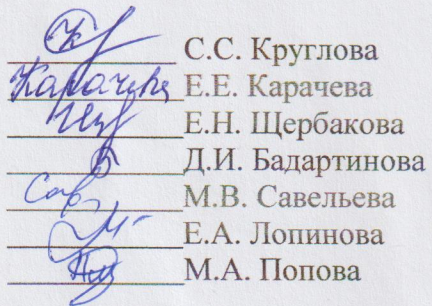 С.С. Круглова
Карачева Е.Е. Карачева
Е.Н. Щербакова
Д.И. Бадартинова
М.В. Савельева
Е.А. Лопинова
М.А. Попова